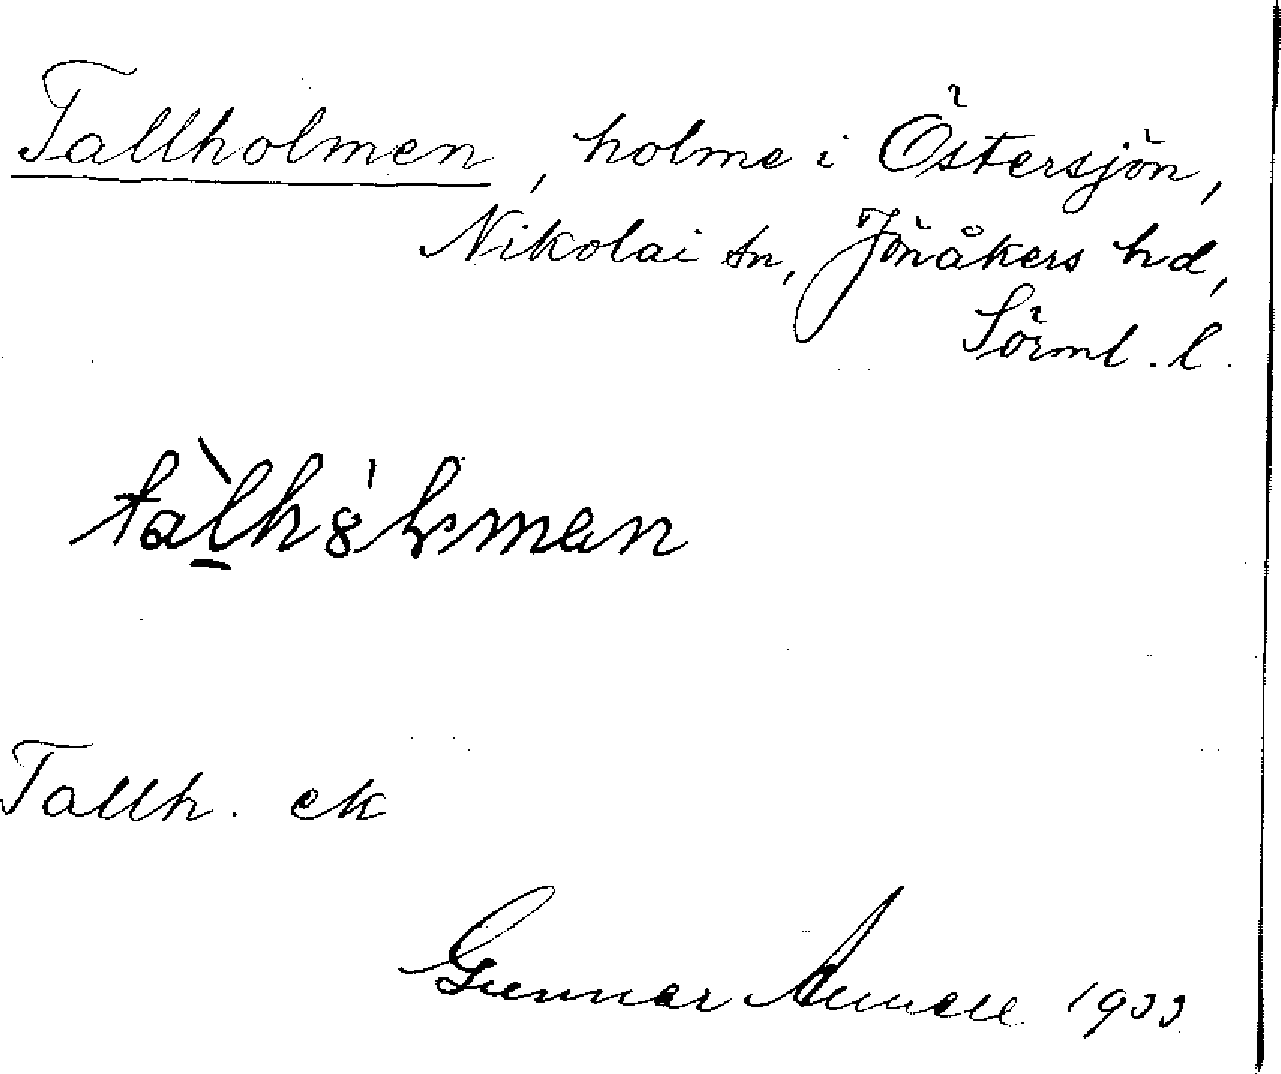 Tallholmen, holme i Östersjön,
Nikolai sn, Jönåkers hd,
Sörml. l.
Tallh. ek
Gunnar 1933